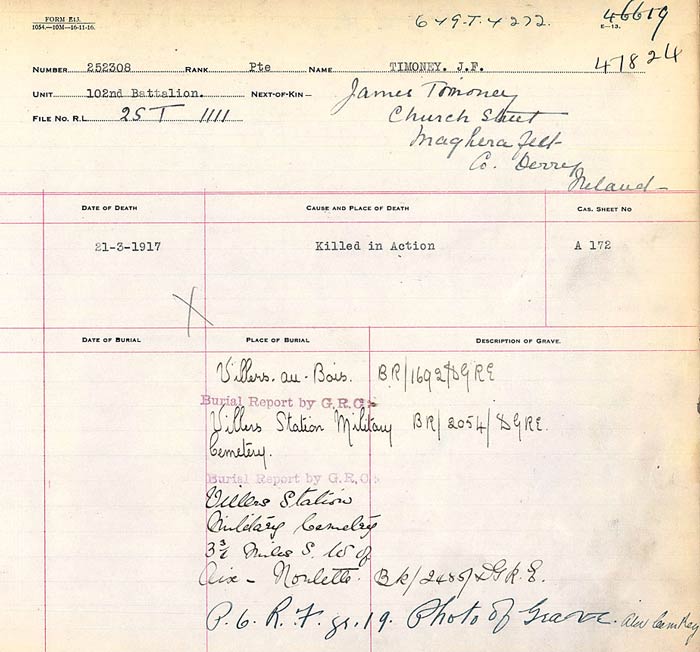 FORM E13.
1054.—10M—16-11-16.
649.T.4272.
46619
E—13.
47824
NUMBER 252308 RANK Pte NAME TIMONEY. J.F.
UNIT 102nd Battalion. NEXT-OF-KIN— James Timoney
FILE NO. R.L. 25 T 1111 Church Street
Maghera felt
Co. Derry
Ireland—
DATE OF DEATH CAUSE AND PLACE OF DEATH CAS. SHEET NO
21-3-1917 Killed in Action A 172
DATE OF BURIAL PLACE OF BURIAL DESCRIPTION OF GRAVE.
Villers-au-Bois. BR/1692/DGRE
Burial Report by G.R.C:-
Villers Station Military BR/2054/DGRE.
Cemetery.
Burial Report by G.R.C:-
Villers Station
Military Cemetery
3¾ Miles S. W of
Aix-Noulette. BR/2485/DG.R.E.
P. 6. R. F. gr. 19. Photo of Grave.